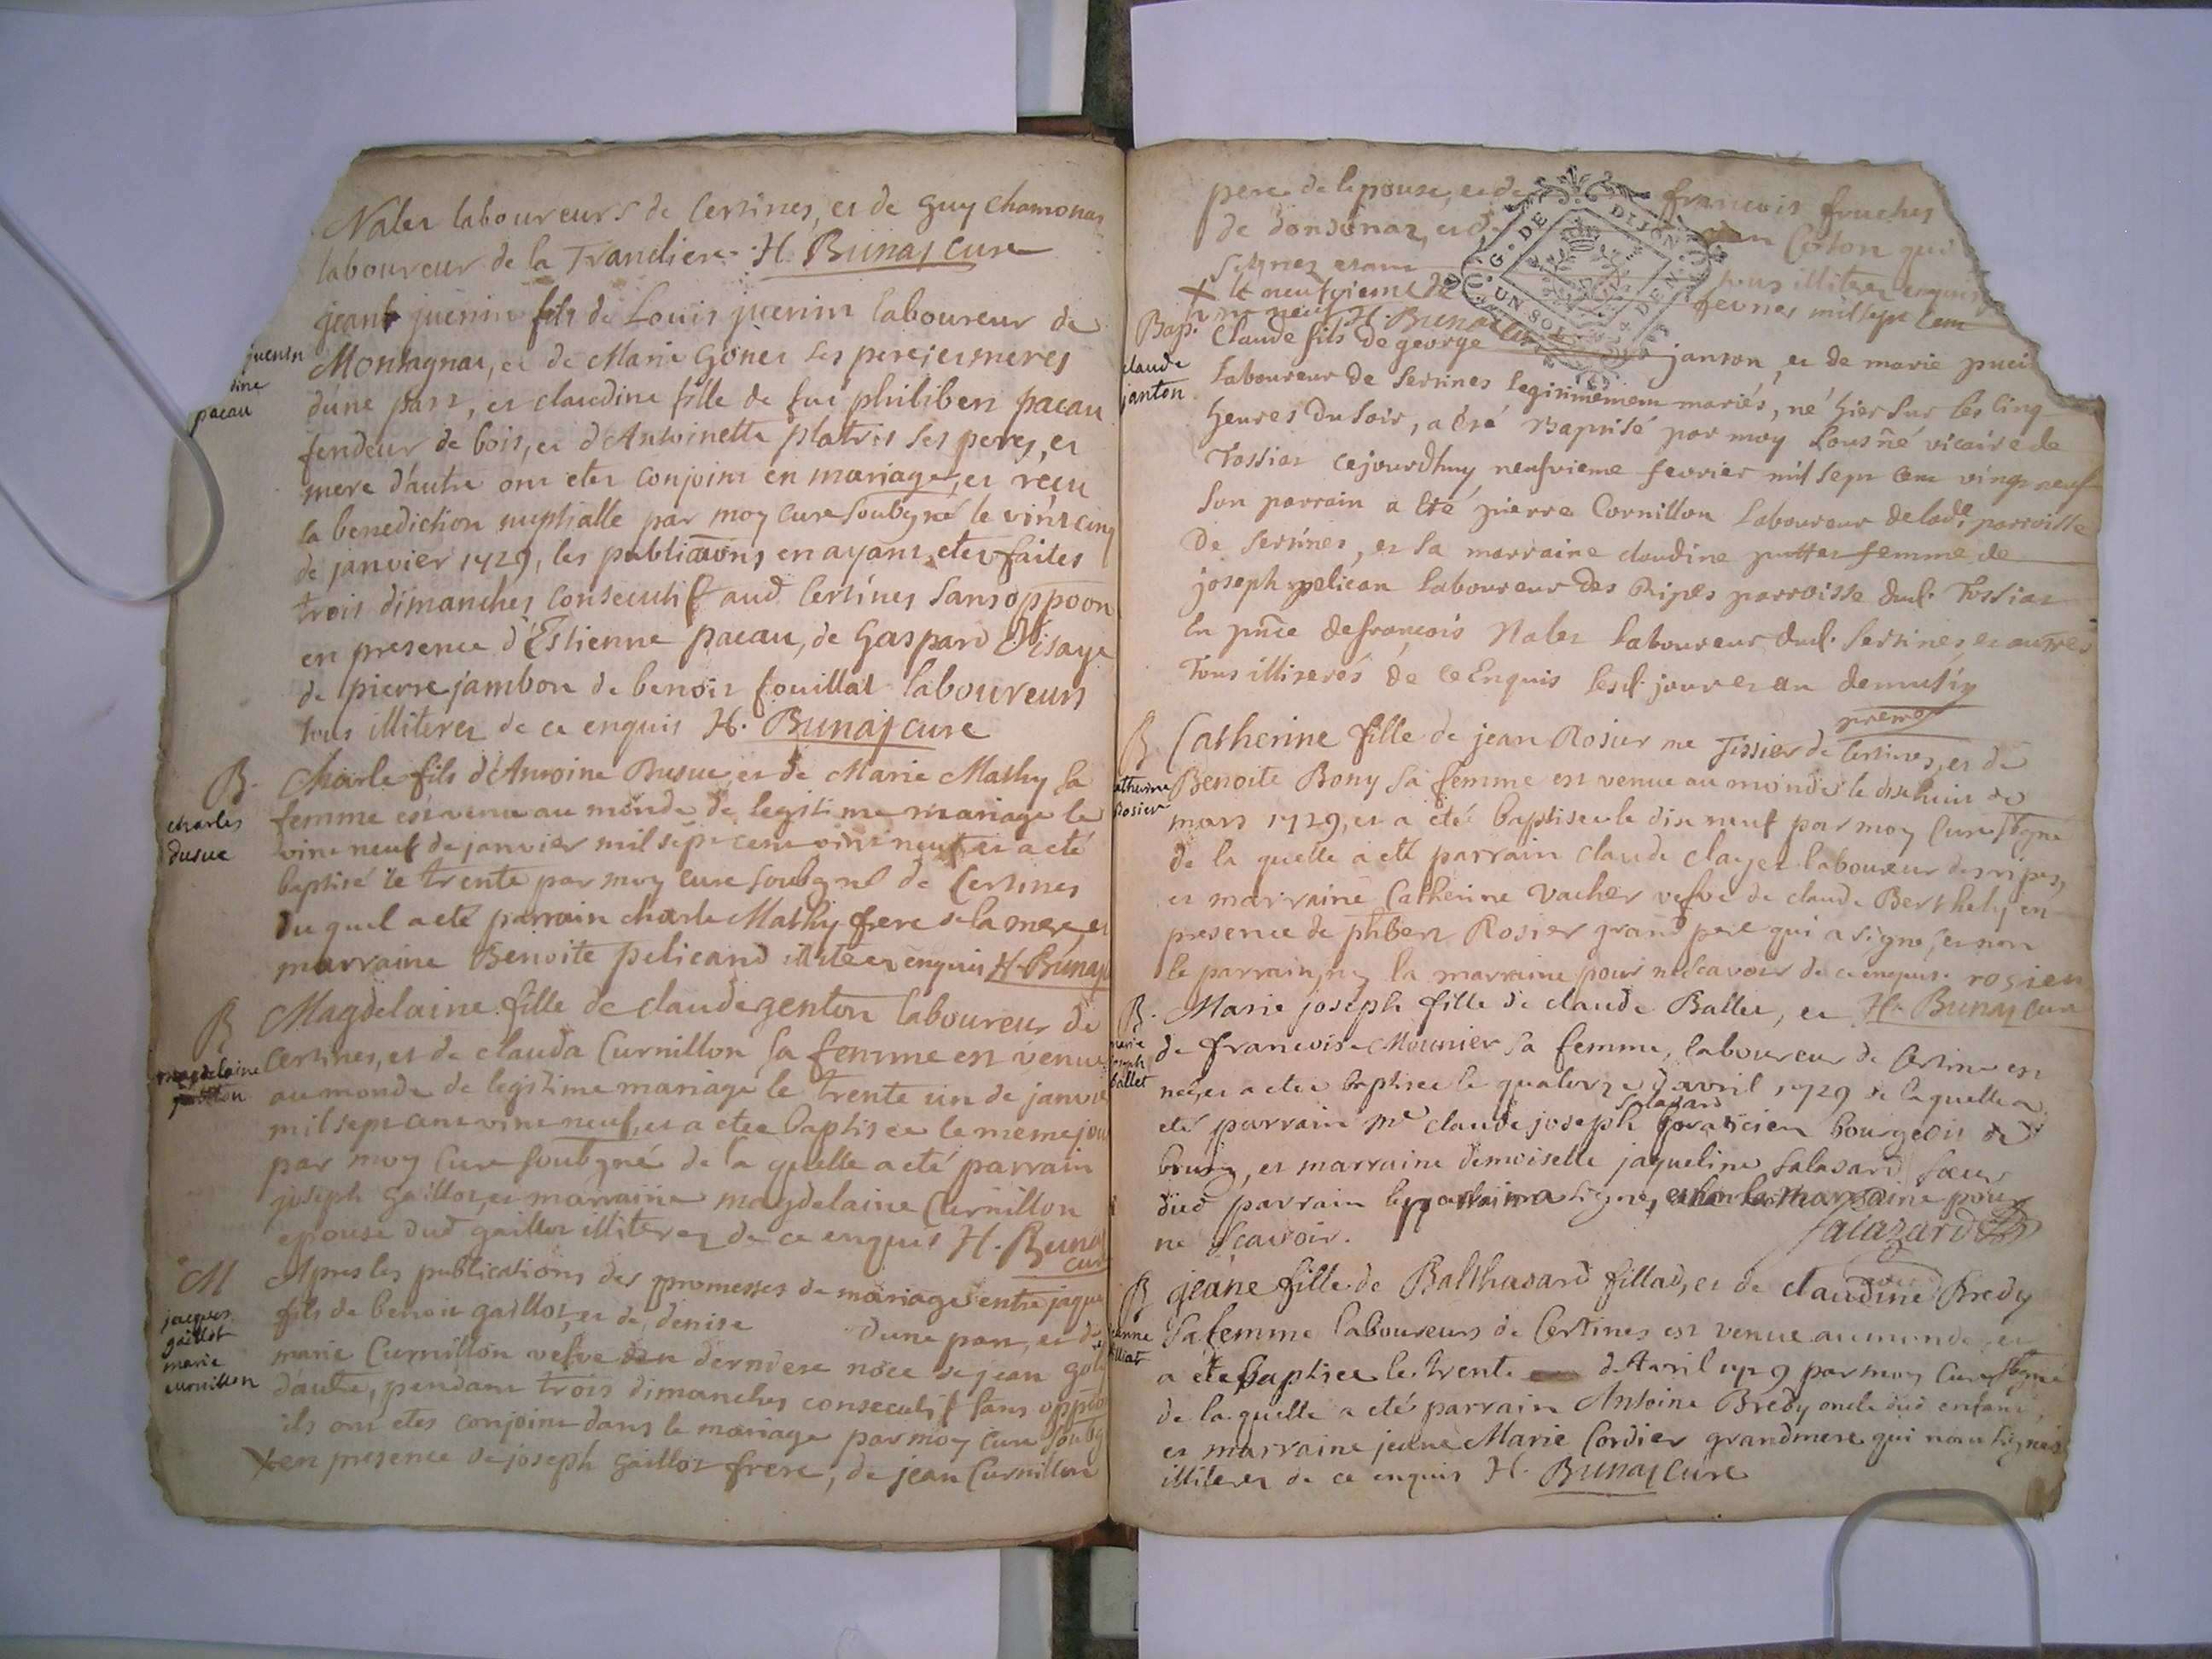 Nalet laboureurs de Certines, et de Guy chamonar
laboureur de la Tranclière. H. Bunaj cure
jean juenin fils de Louis juenin laboureur de
Montagnat, et de Marie Gonet ses pere, et meres
dune part, et claudine fille de feu philibert pacau
fendeur de bois, et d'Antoinette platret ses peres, et
mere d'autre ont etes conjoint en mariage, et reçu
la benediction nuptialle par moy cure soubzné le vint cinq
de janvier 1729, les publications en ayant etes faites
trois dimanches consecutif aud Certines sans oppoon
en presence d'Estienne pacau, de Gaspard
de pierre jambon de benoit fouillat laboureurs
tous illiterez de ce enquis H. Bunaj cure
juenin
dine
pacau
B.
charles
dusue
Charle fils d'Antoine Dusue, et de Marie Mathy sa
femme est venu au monde de legitime mariage le
vint neuf de janvier mil sept cent vint neuf et a eté
baptisé le trente par moy cure soubzné de Certines
du quel a eté parrain charle Mathy frere de la mere, et
marraine Benoite pelicand illiterez enquis H. Bunaj
B
magdelaine
Magdelaine fille de claude genton laboureur de
Certines, et de clauda Curnillon sa femme est venue
au monde de legitime mariage le trente un de janvie
mil sept cent vint neuf, et a etee baptisee le meme jou
par moy Cure soubzné de la quelle a eté parrain
joseph gaillot, et marraine magdelaine Curnillon
epouse dud gaillot illiterez de ce enquis H. Buna
cure
M
jacques
gaillot
marie
curnillon
Apres les publications des promesses de mariage entre jaque
fils de benoit gaillot, et de denise dune part, et de
marie Curnillon vefve en derniere noce de jean
d'autre, pendant trois dimanches consecutif sans
ils ont etes conjoint dans le mariage par moy Cure soubz
X en presence de joseph gaillot frere, de jean Curnillon
pere de lepouse, et de francois fruches
de donsonnaz, et d Coton qui
signez tous illiterez enquis
X le neufvieme de fevrier mil sept cent
neuf H. Bunaj
Bap.
claude
janton
Claude fils de george janton, et de marie
Laboureur de Sertines legitimement mariés, né hier sur les cinq
heures du soir, a été Baptisé par moy Sousné vicaire de
Tossiat cejourdhuy neufvieme fevrier mil sept cent vingt neuf
Son parrain a été pierre Cornillon Laboureur de lad. parroisse
De Sertines, et la marraine claudine femme de
joseph pelican Laboureur des Ripes parroisse dud. Tossiat
En pñce de françois Nalet Laboureur dud. Sertines et autres
Tous illiterés de ce Enquis lesd. jour et an
B
atherine
Rosier
Catherine fille de jean Rosier me Tissier de Certines, et de
Benoite Bony sa femme est venue au monde le dixhuit de
mars 1729, et a eté baptisee le dix neuf par moy Cure sszné
de la quelle a eté parrain claude clayet laboureur des ripes,
et marraine Catherine Vacher vefve de claude Berthely en
presence de phbert Rosier grand pere qui a signe, et non
le parrain, ny la marraine pour ne scavoir de ce enquis. rosier
B.
marie
joseph
ballet
Marie joseph fille de claude Ballet, et H. Bunaj cure
de francoise Mounier sa femme, laboureur de Certine est
nee, et a etee baptisee le quatorze d'avril 1729 de laquelle a
salazard
eté parrain mr claude joseph praticien bourgeois de
bourg, et marraine demoiselle jaqueline Salazard sœur
dud parrain le parrain a signe, et non la marraine pour
ne scavoir. salazard
B
jeanne
filliat
jeane fille de Balthazard fillad, et de claudine Bredy
sa femme laboureurs de Certines est venue au monde, et
a été baptisee le trente d'Avril 1729 par moy Cure sszné
de la quelle a eté parrain Antoine Bredy oncle dud enfant,
et marraine jeane Marie Cordier grandmere qui nont signés
illiterez de ce enquis H. Bunaj Cure
G. DE DIJON
UN SOL
DEN